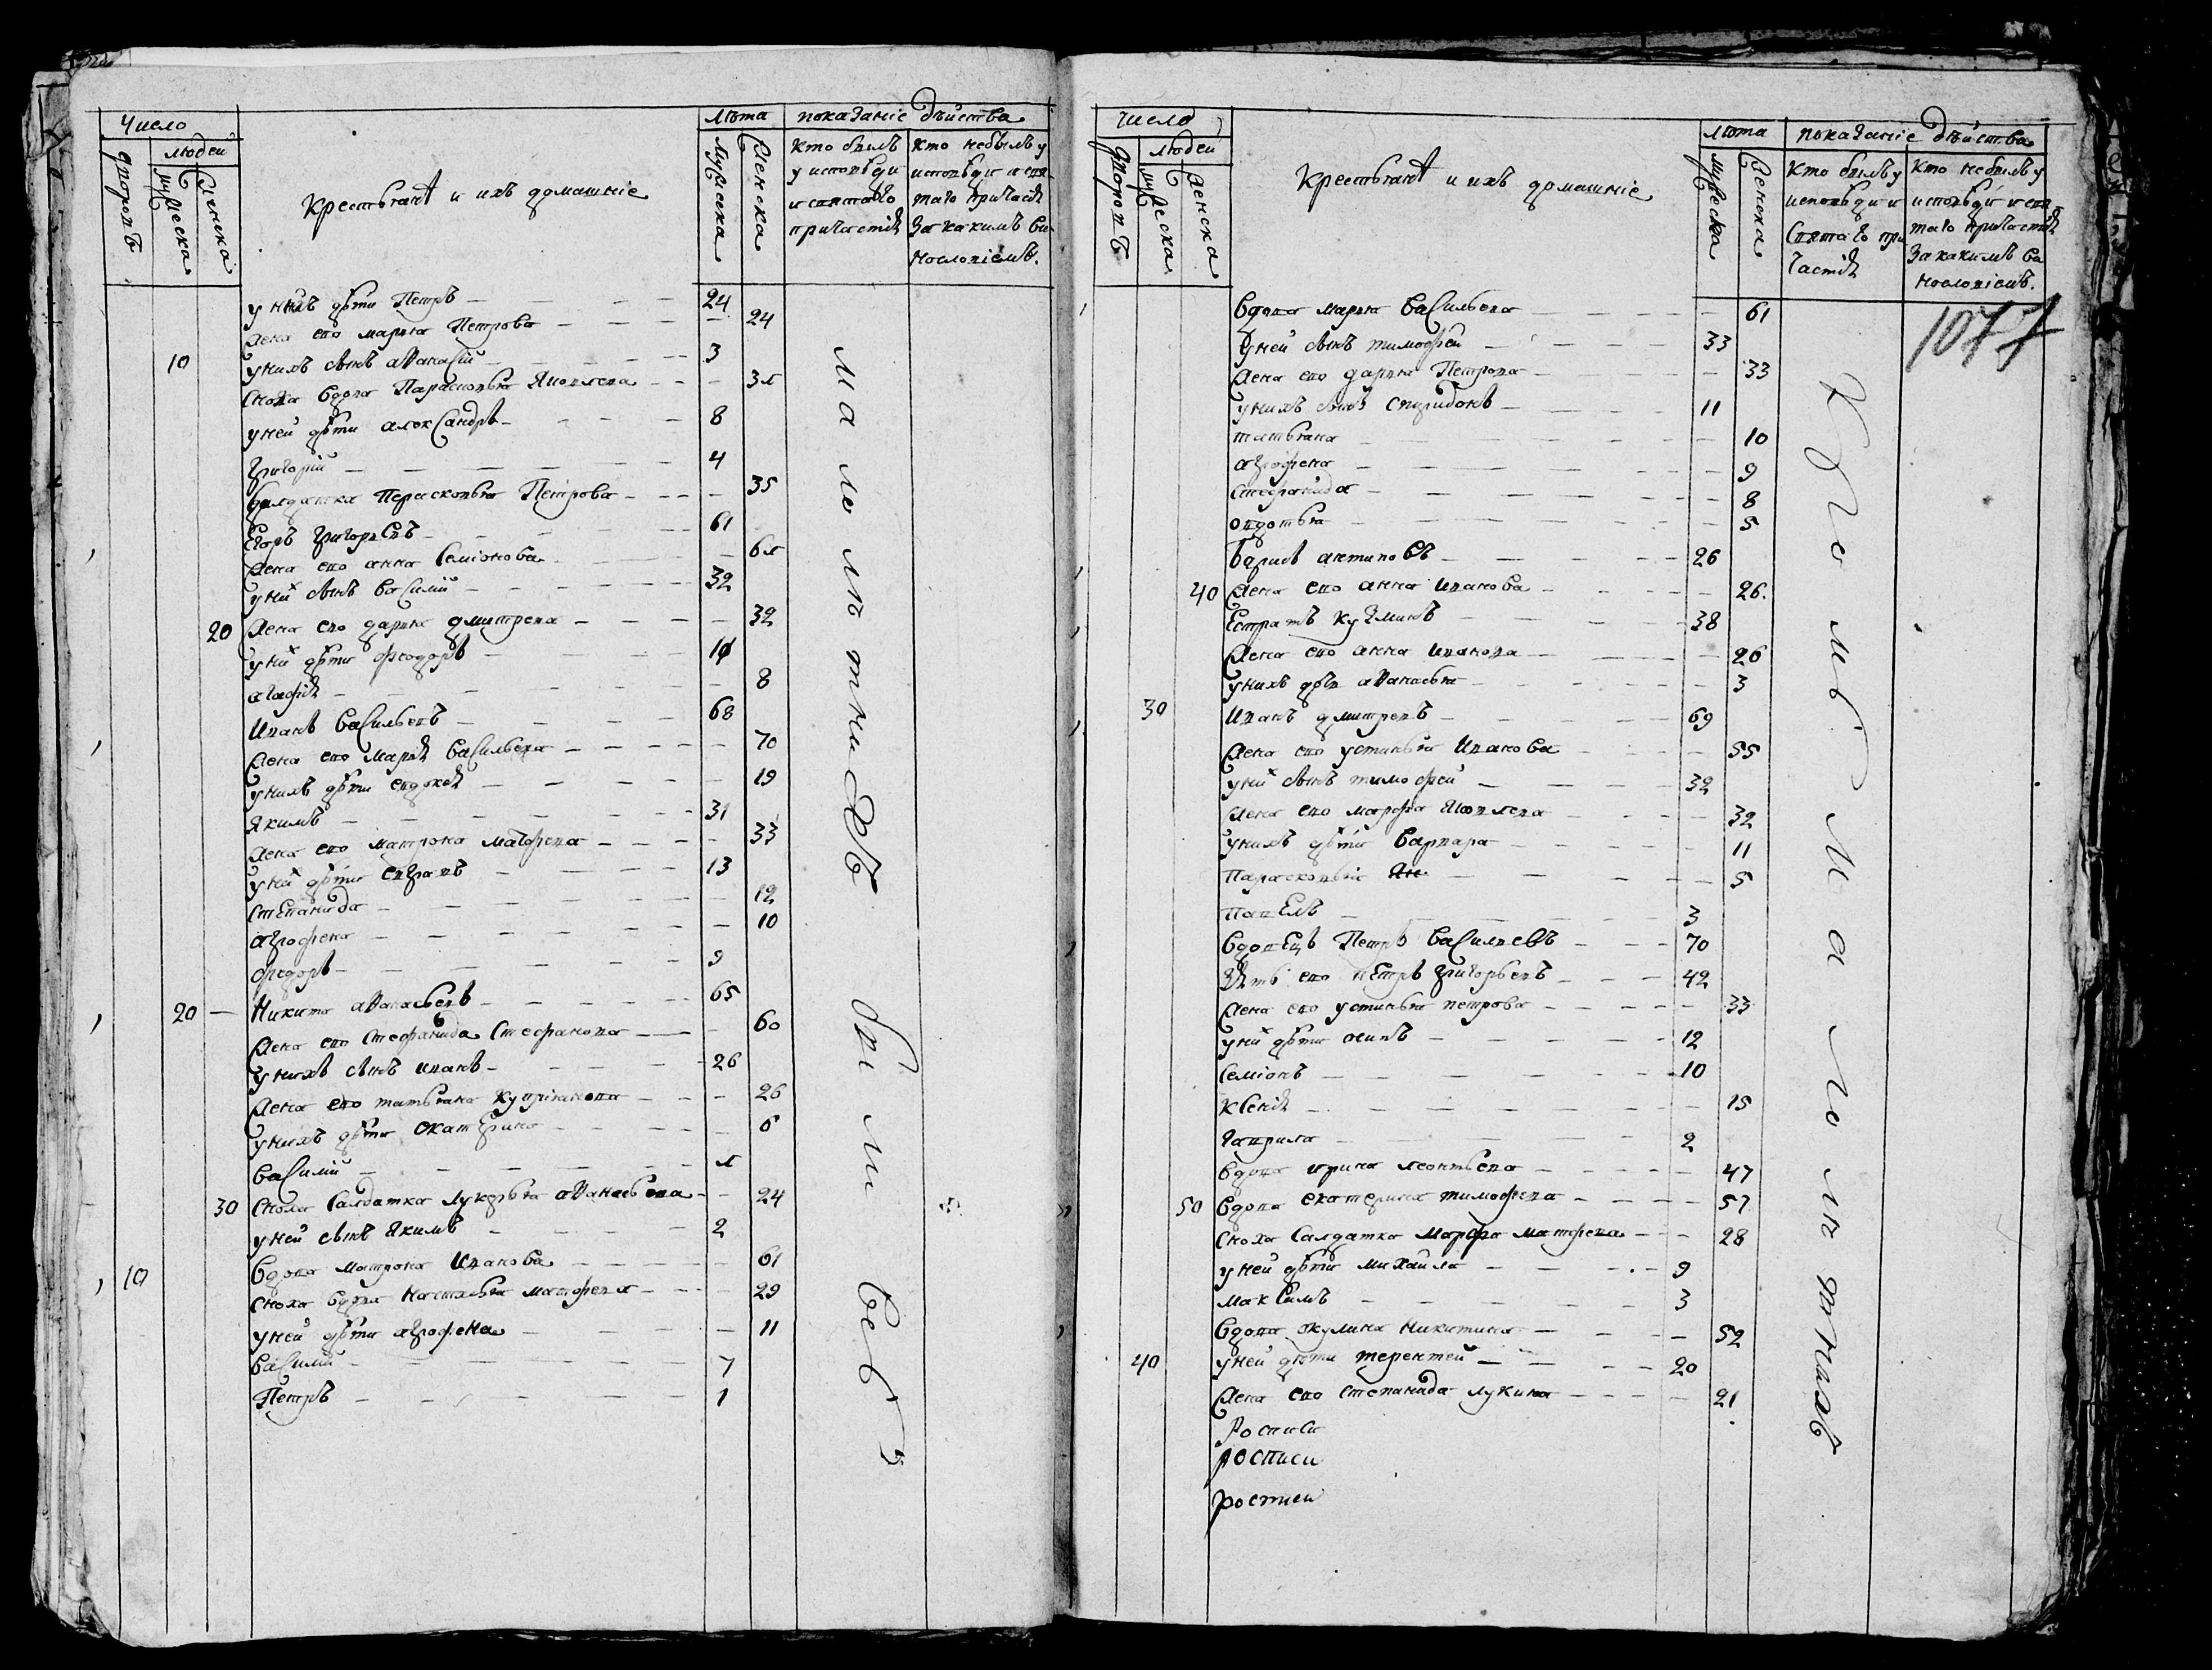 Число
людей
дворовъ
мужеска
женска
Крестьянѣ и ихъ домашніе
Лѣта
Мужеска
Женска
показаніе дѣйства
Кто былъ
у исповѣди
и святаго
причастія
Кто небылъ у
исповѣди и свя-
таго причастія
За какимъ ви-
нословіемъ.
у нихъ дѣти Петръ — 24
Жена его марья Петрова — 24
10 у нихъ сынъ аѳанасій — 3
Сноха вдова Парасковья Яковлева — 3л
у ней дѣти алекСандръ — 8
Григорій — 4
Салдатка Перасковья Петрова — 35
Егоръ ГригорьеВъ — 61
Жена его анна Семіонова — 6л
у них сынъ ваСилій — 32
20 Жена его дарья дмитрева — 32
у них дѣти феодоръ — 11
агафія — 8
Иванъ ВаСильевъ — 68
Жена его Марія ваСильева — 70
у нихъ дѣти евдокея — 19
Якимъ — 31
Жена его матрона матфеева — 33
у них дѣти евграѳъ — 13
стеПанида — 12
аграфена — 10
федоръ — 9
20 — Никита аѳанасьевъ — 65
Жена его Стефанида Стефанова — 60
у нихъ сынъ иванъ — 26
Жена его татьяна Купріанова — 26
у нихъ дѣти екатерина — 6
ваСилій — л
30 Сноха Салдатка Лукерья аѳанасьева — 24
у ней сынъ Якимъ — 2
10 вдова матрона Иванова — 61
Сноха вдова Настасья матфева — 29
у ней дѣти аграфена — 11
ваСилій — 7
Петръ — 1
малолѣтнихъ
были всѣ
Число
людей
дворовъ
мужеска
женска
Крестьянѣ и ихъ домашніе
лѣта
мужеска
женска
показаніе дѣйства
Кто былъ у
исповѣди и
Святаго при
частія
Кто небылъ у
исповѣди и свя-
таго причастія
За какимъ ви
нословіемъ.
1077
Вдова марья ваСильева — 61
У ней сынъ тимофей — 33
Жена его дарья Петрова — 33
у нихъ сынъ спиридонъ — 11
татьяна — 10
аграфена — 9
стефанида — 8
овдотья — 5
Борисъ антиповъ — 26
40 Жена его анна Иванова — 26.
Естратъ КуЗминъ — 38
Жена его анна иванова — 26
у нихъ дочь аѳанасья — 3
30 Иванъ дмитревъ — 69
Жена его устинья Иванова — 55
у них сынъ тимофей — 32
Жена его марфа Яковлева — 32
у нихъ дѣти варвара — 11
Парасковья — 5
ПавЕлъ — 3
вдовЕцъ Петръ ВаСильевъ — 70
Зять его пЕтръ григорьевъ — 42
Жена его устинья петрова — 33
у них дѣти осипъ — 12
Семіонъ — 10
КСенія — 15
Гаврила — 2
вдова ирина леонтьева — 47
50 вдова екатерина тимофева — 57
сноха Салдатка Марфа матфева — 28
у ней дѣти михаила — 9
макСимъ — 3
вдова окулина Никитина — 52
40 у ней дѣти терентей — 20
Жена его степанида лукина — 21
Росписи
росписи
росписи
Кромѣ Малолѣтнихъ